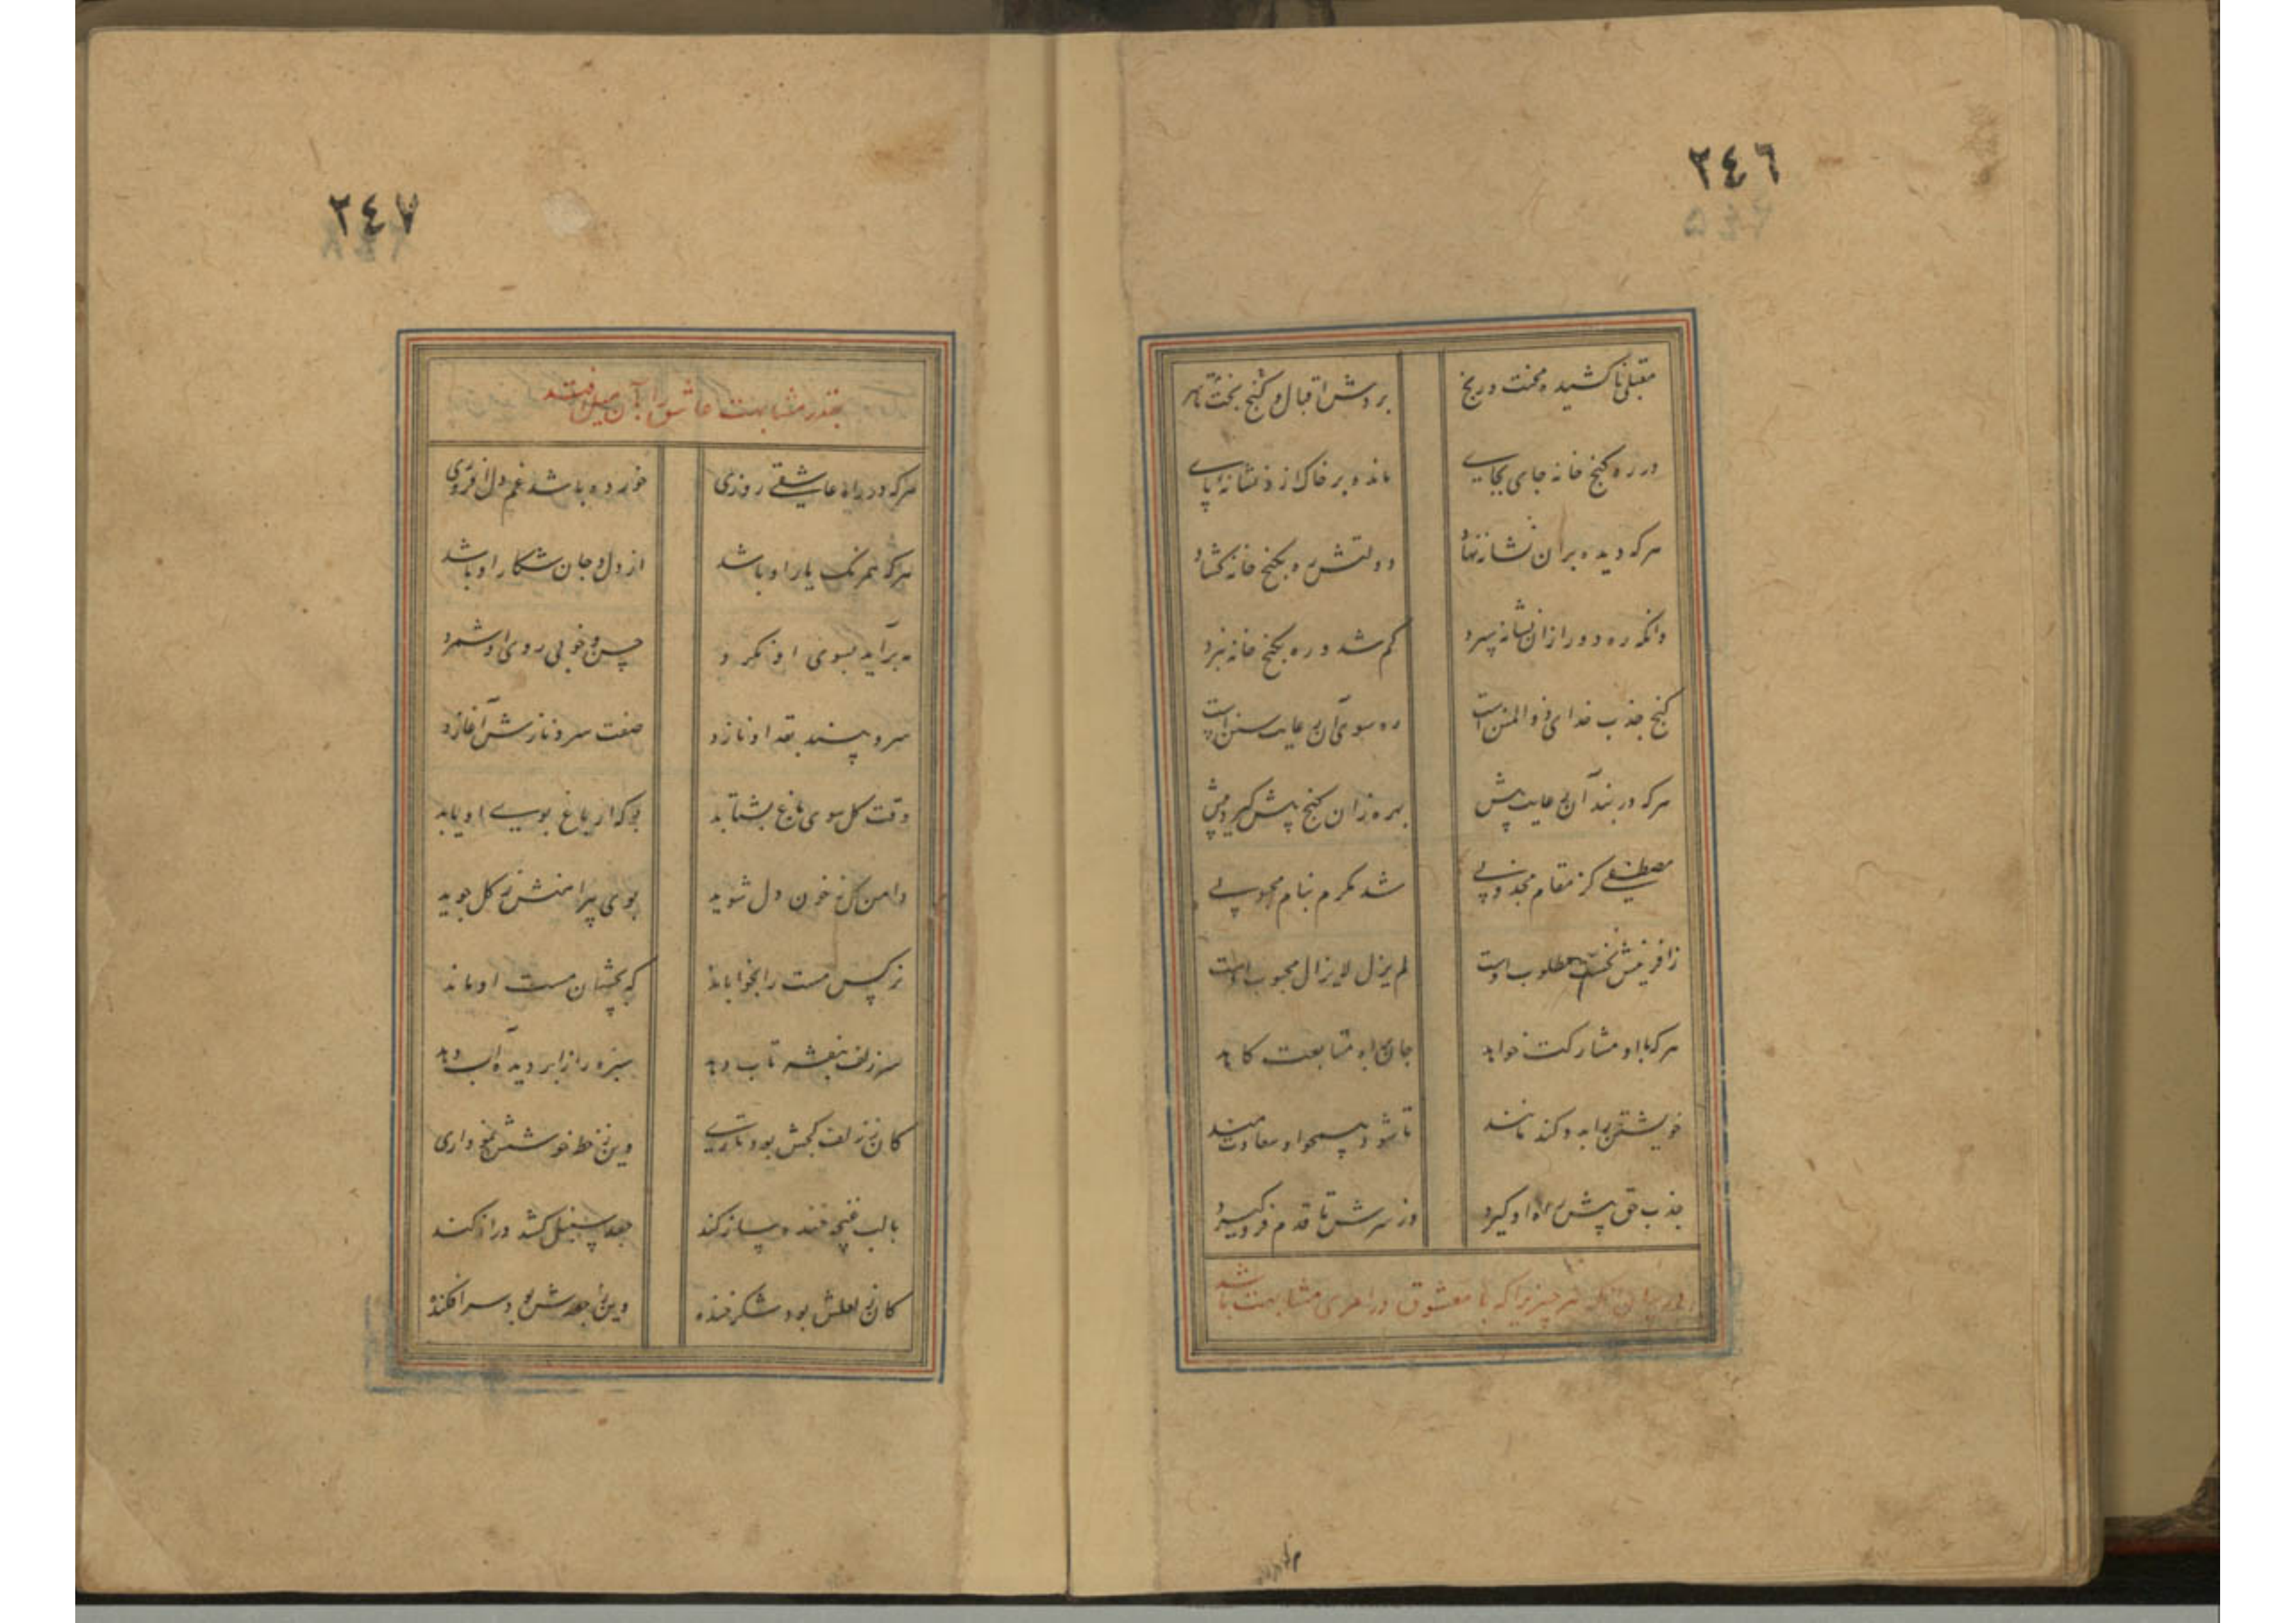 ٢٤٦
مقبلی ناکشیده محنت و رنج بر درش اقبال و گنج بخت
در ره گنج خانه جای بجای مانده بر خاک از نشانه پای
هر که دیده بر آن نشانه نهاد دولتش ره بگنج خانه گشاد
وانکه ره دور از آن نشانه سپرد گم شد و ره بگنج خانه نبرد
گنج جذب خدای ذوالمنن است ره سوی آن رعایت سنن است
هر که در بند آن رعایت بیش بهره زان گنج پیش گیرد بیش
مصطفی کز مقام مجذوبی شد مکرم بنام محبوبی
زافرینش نخست مطلوب اوست لم یزل لایزال محبوب اوست
هر که با او مشارکت خواهد جان براه متابعت کاهد
خویشتن را بدو کند مانند تا شود همچو او سعادتمند
جذب حق پیش راه او گیرد وز سرش تا قدم فرو گیرد
در بیان آنکه هر چیز را که با معشوق در امری مشابهت باشد
٢٤٧
بقدر مشابهت عاشق را بآن میل افتد
هر که در راه عاشقی روزی خورده باشد غم دل افروزی
هر که همرنگ یار او باشد از دل و جان شکار او باشد
مه برآید بسوی او نگرد حسن و خوبی روی او شمرد
سرو بیند بقد او نازد صفت سرو نازش آغازد
وقت گل سوی باغ بشتابد بو که از باغ بوی او یابد
دامن گل ز خون دل شوید بوی پیراهنش ز گل جوید
نرگس مست را بخواباند که بچشمان مست او ماند
سر زلف بنفشه تاب دهد سبزه را ز ابر دیده آب دهد
کان ز زلف کجش بود تاری وین ز خط خوشش نموداری
با لب غنچه خنده ساز کند جعد سنبل کشد دراز کند
کان ز لعلش بود شکر خنده وین ز جعدش بود سرافکنده